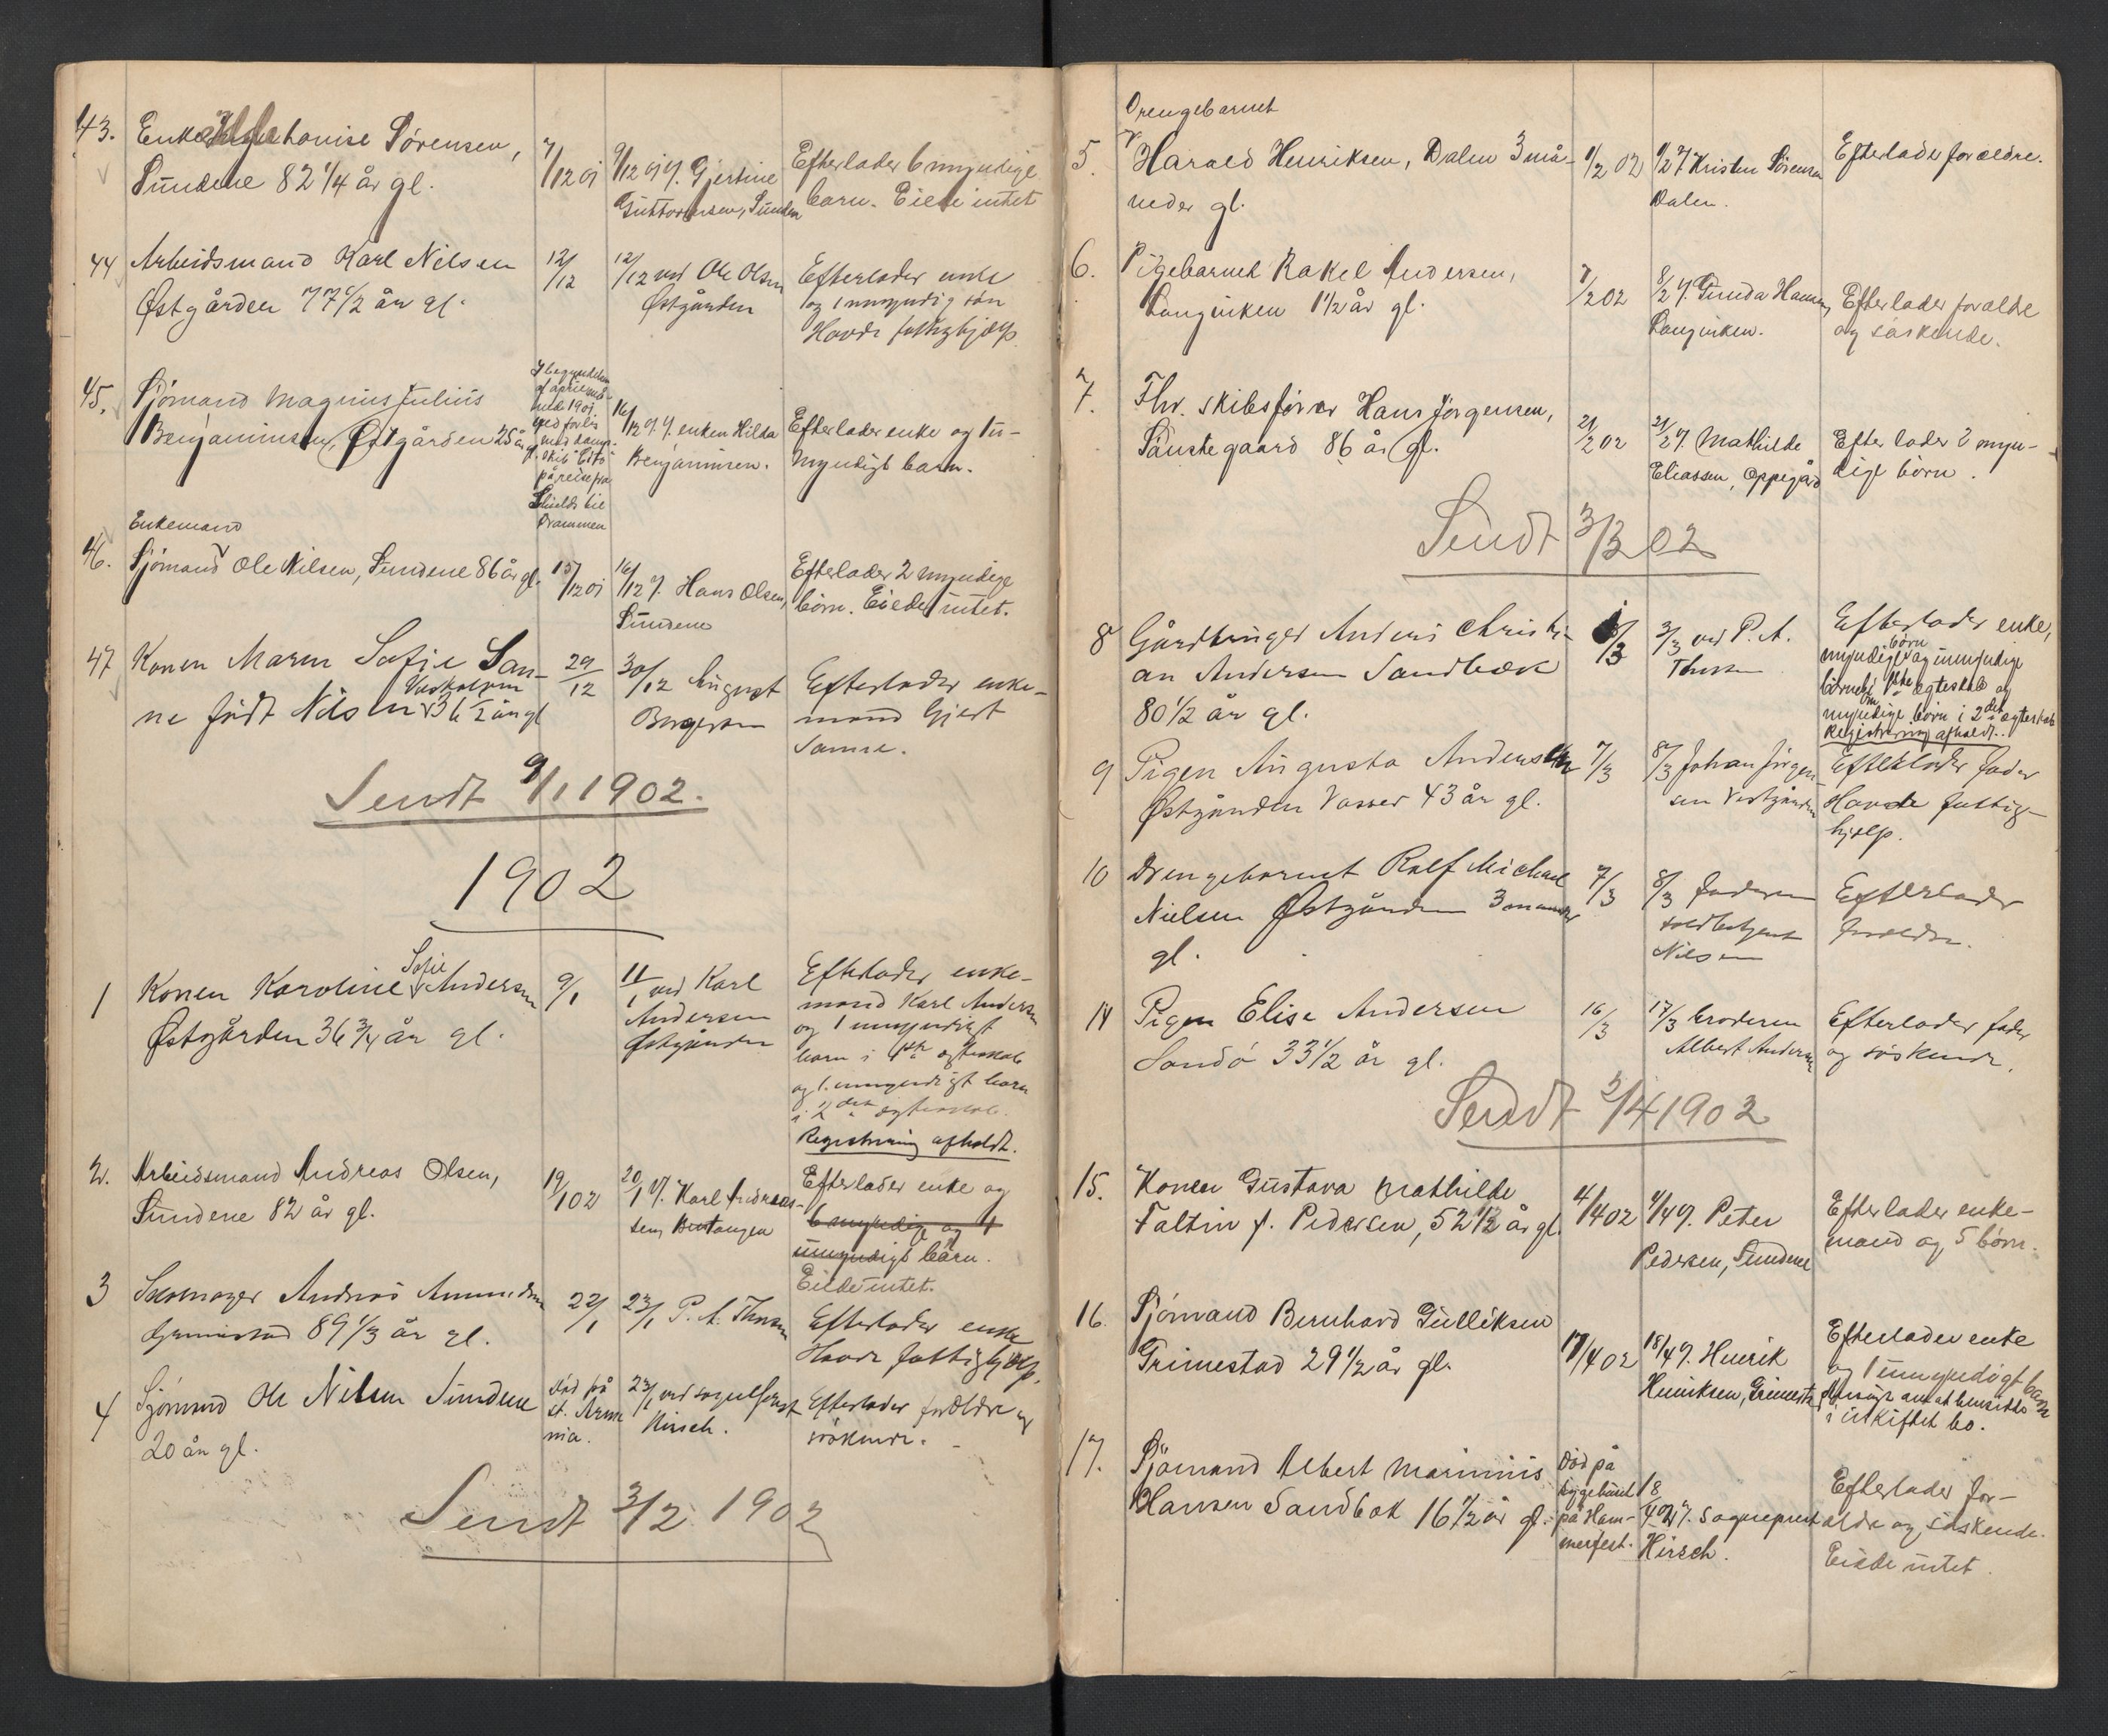 43. Enken Louise Sørensen,
Sundene 82 1/4 år gl.
7/12 01
9/12 01 v. Gjertine
Guttormsen, Sunden
Efterlader 6 myndige
barn. Eiede intet
44 Arbeidsmand Karl Nilsen
Østgården 77 1/2 år gl.
12/12
12/12 ved Ole Olsen
Østgården
Efterlader enke
og 1 umyndig søn
Havde fattighjælp
45. Sjömand Magnus Julius
Benjaminsen, Østgården 25 år gl.
I begyndelsen
af april må-
ned 1901.
ved forlis
med damp-
skib
på reise fra
Shields til
Drammen
16/12 v. enken Hilda
Benjaminsen.
Efterlader enke og 1 u-
myndigt barn.
Enkemand
46. Sjömand Ole Nilsen, Sundene 86 år gl.
15/12 01
16/12 v. Hans Olsen,
Sundene
Efterlader 2 myndige
börn. Eiede intet.
47 Konen Maren Sofie San-
ne födt Nilsen 36 1/2 år gl
29/12
30/12 August
Borgersen
Efterlader enke-
mand Gjert
Sanne.
Sendt 9/1 1902.
1902
1 Konen Karoline Sofie Andersen
Østgården 36 3/4 år gl.
9/1
11/1 ved Karl
Andersen
Østgården
Efterlader enke-
mand Karl Andersen
og 1 umyndigt
barn i 1ste ægteskab
og 1 umyndigt barn
i 2det ægteskab.
Registrering afholdt.
2. Arbeidsmand Andreas Olsen,
Sundene 82 år gl.
19/1 02
20/1 v. Karl Andreas-
sen, Buetangen
Efterlader enke og
6 myndige og 1
umyndigt börn.
Eiede intet.
3 Andreas Amundsen
89 1/3 år gl.
22/1
23/1 P. A. Thorsen
Efterlader enke
Havde fattighjælp.
4 Sjömand Ole Nilsen Sundene
20 år gl.
död på
23/1 ved sogneprest
Hirsch.
Efterlader forældre og
söskende.
Sendt 3/2 1902
Drengebarnet
5 Harald Henriksen, Dalen 3 må-
neder gl.
1/2 02
1/2 v. Kristen Sörensen
Dalen.
Efterlader forældre.
6. Pigebarnet Rakel Andersen,
Langviken 1 1/2 år gl.
7/2 02
8/2 v. Gunda Hansen,
Langviken.
Efterlader forældre
og söskende.
7. Fhv. skibsförer Hans Jörgensen,
Pånstegaard 86 år gl.
21/2 02
21/2 v. Mathilde
Eliassen, Oppegård
Efterlader 2 myn-
dige börn.
Sendt 3/3 02
8 Gårdbruger Anders Christi-
an Andersen Sandbæk
80 1/2 år gl.
1/3
3/3 ved P. A.
Thorsen
Efterlader enke,
myndige börn og umyndige
börnebörn i 1ste ægteskab og
myndige börn i 2det ægteskab
Registrering afholdt.
9 Pigen Augusta Andersen
Østgården Vasser 43 år gl.
7/3
8/3 Johan Jörgen-
sen Vestgården
Efterlader fader
Havde fattig-
hjælp.
10 Drengebarnet Rolf Michael
Nielsen Østgården 3 maaneder
gl.
7/3
8/3 faderen
toldbetjent
Nilsen
Efterlader
forældre.
14 Pigen Elise Andersen
Sandö 33 1/2 år gl.
16/3
17/3 broderen
Albert Andersen
Efterlader fader
og söskende.
Sendt 3/4 1902
15. Konen Gustava Mathilde
Faltin f. Pedersen, 52 1/2 år gl.
4/4 02
4/4 v. Peter
Pedersen, Sundene
Efterlader enke-
mand og 5 börn.
16. Sjömand Bernhard Gulliksen
Grimestad 29 1/2 år gl.
17/4 02
18/4 v. Henrik
Henriksen, Grimestad
Efterlader enke
og 1 umyndigt barn
Ansögt om at hensidde
i uskiftet bo.
17. Sjömand Albert Marinius
Hansen Sandbæk 16 1/2 år gl.
Död på
sygehuset
på Ham-
merfest.
18/4 02 v. sogneprest
Hirsch.
Efterlader for-
ældre og söskende.
Eiede intet.